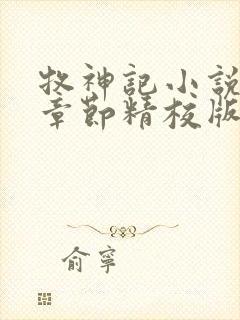 牧神記小說
章節精校版
俞寧